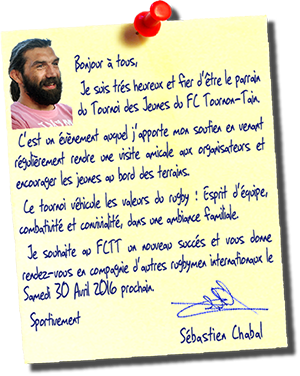 Bonjour à tous,
Je suis trés heureux et fier d'être le parrain
du Tournoi des Jeunes du FC Tournon-Tain.
C'est un évènement auquel j'apporte mon soutien en venant
régulièrement rendre une visite amicale aux organisateurs et
encourager les jeunes au bord des terrains.
Ce tournoi véhicule les valeurs du rugby : Esprit d'équipe,
combativité et convivialité, dans une ambiance familiale.
Je souhaite au FCTT un nouveau succés et vous donne
rendez-vous en compagnie d'autres rugbymen internationaux le
Samedi 30 Avril 2016 prochain.
Sportivement
Sébastien Chabal